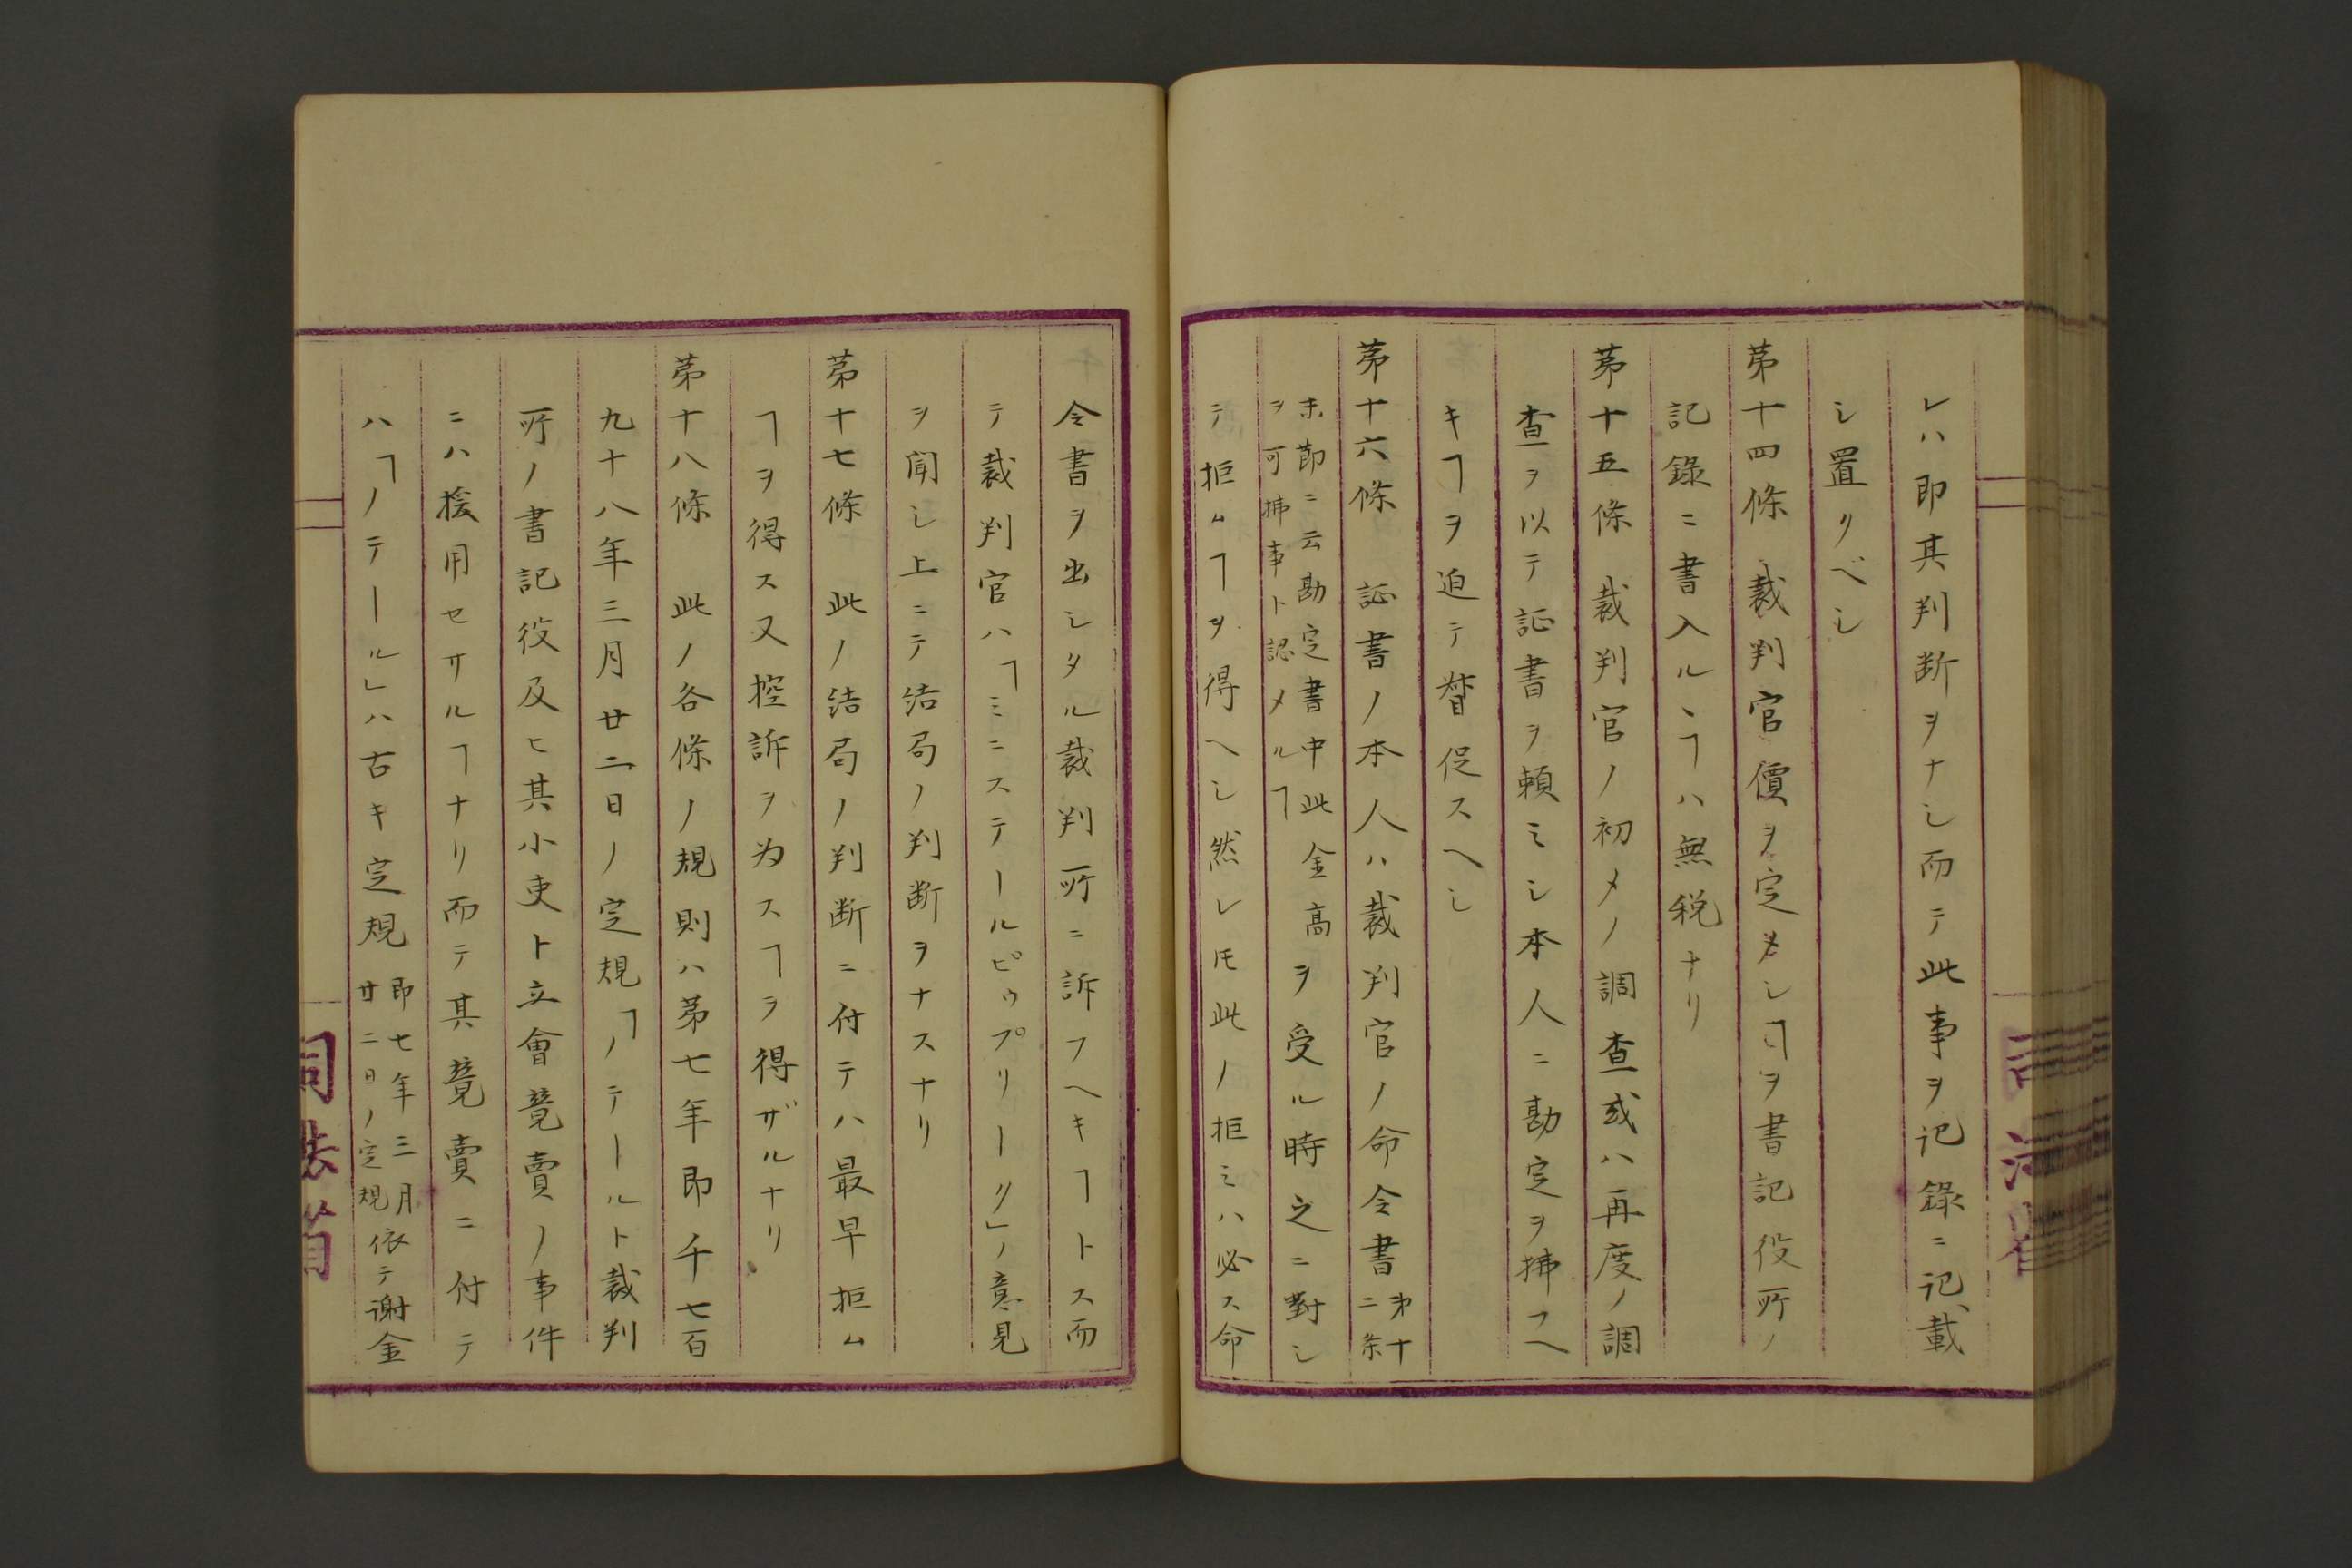 レハ即其判断ヲナシ而テ此事ヲ记錄ニ记載
シ置クベシ
苐十四條 裁判官價ヲ定メシヿヲ書記役所ノ
記錄ニ書入ルヽヿハ無税ナリ
苐十五條 裁判官ノ初メノ調査或ハ再度ノ調
査ヲ以テ証書ヲ頼ミシ本人ニ勘定ヲ拂フヘ
キヿヲ迫テ督促スヘシ
苐十六條 証書ノ本人ハ裁判官ノ命令書
苐十
二条
末節ニ云勘定書中此金高
ヲ可拂事ト認メルヿ
ヲ受ル時之ニ對シ
テ拒ムヿヲ得ヘシ然レ𪜈此ノ拒ミハ必ス命
令書ヲ出シタル裁判所ニ訴フヘキヿトス而
テ裁判官ハ「ミニステールピゥプリーク」ノ意見
ヲ聞シ上ニテ结局ノ判断ヲナスナリ
苐十七條 此ノ结局ノ判断ニ付テハ最早拒ム
ヿヲ得ス又控訴ヲ为スヿヲ得ザルナリ
苐十八條 此ノ各條ノ規則ハ苐七年即千七百
九十八年三月廿二日ノ定規「ノテールト裁判
所ノ書記役及ヒ其小吏ト立會競賣ノ事件
ニハ援用セサルヿナリ而テ其競賣ニ付テ
ハ「ノテール」ハ古キ定規
即七年三月
廿二日ノ定規
依テ谢金
司法省